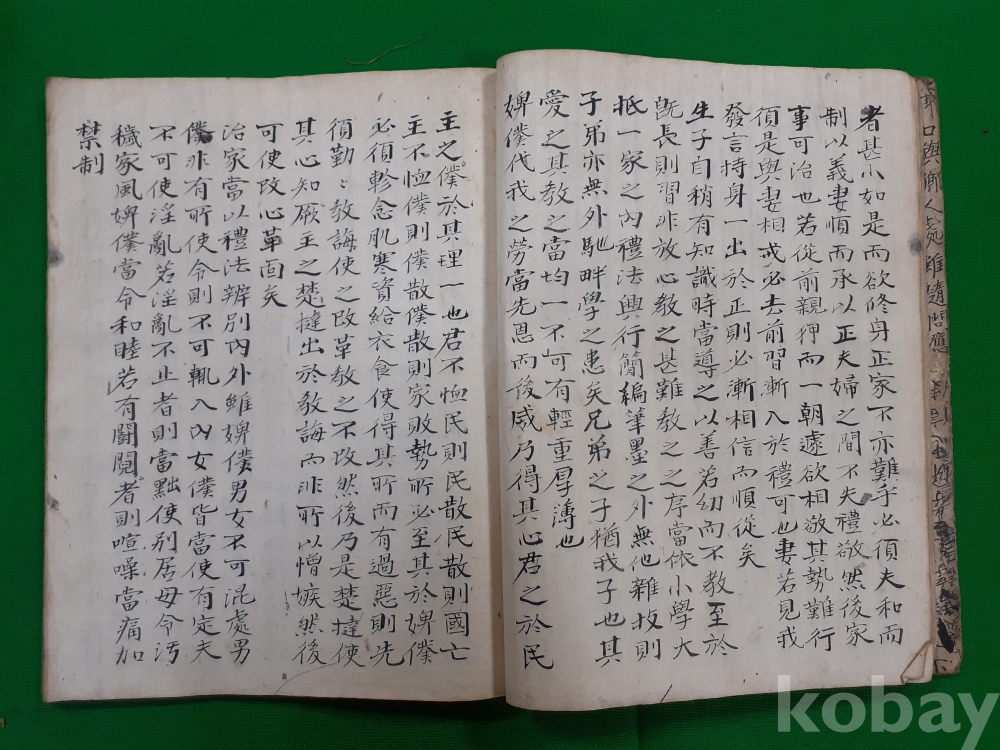 者甚小如是而欲修身正家不亦難乎必須夫和而
制以義妻順而承以正夫婦之間不失禮敬然後家
事可治也若從前親狎而一朝遽欲相敬其勢難行
須是與妻相戒必去前習漸入於禮可也妻若見我
發言持身一出於正則必漸相信而順從矣
生子自稍有知識時當導之以善若幼而不教至於
旣長則習非放心敎之甚難敎之之序當依小學大
抵一家之內禮法興行簡編筆墨之外無他雜技則
子弟亦無外馳畔學之患矣兄弟之子猶我子也其
愛之其教之當均一不可有輕重厚薄也
婢僕代我之勞當先恩而後威乃得其心君之於民
主之僕於其理一也君不恤民則民散民散則國亡
主不恤僕則僕散僕散則家敗勢所必至其於婢僕
必須軫念肌寒資給衣食使得其所而有過惡則先
須勤〻教誨使之改革教之不改然後乃是楚撻使
其心知厥主之楚撻出於敎誨而非所以憎嫉然後
可使改心革面矣
治家當以禮法辨別內外雖婢僕男女不可混處男
僕非有所使令則不可輒入內女僕皆當使有定夫
不可使淫亂若淫亂不止者則當黜使別居毋令汚
穢家風婢僕當令和睦若有鬪鬩者則喧噪當痛加
禁制
kobay